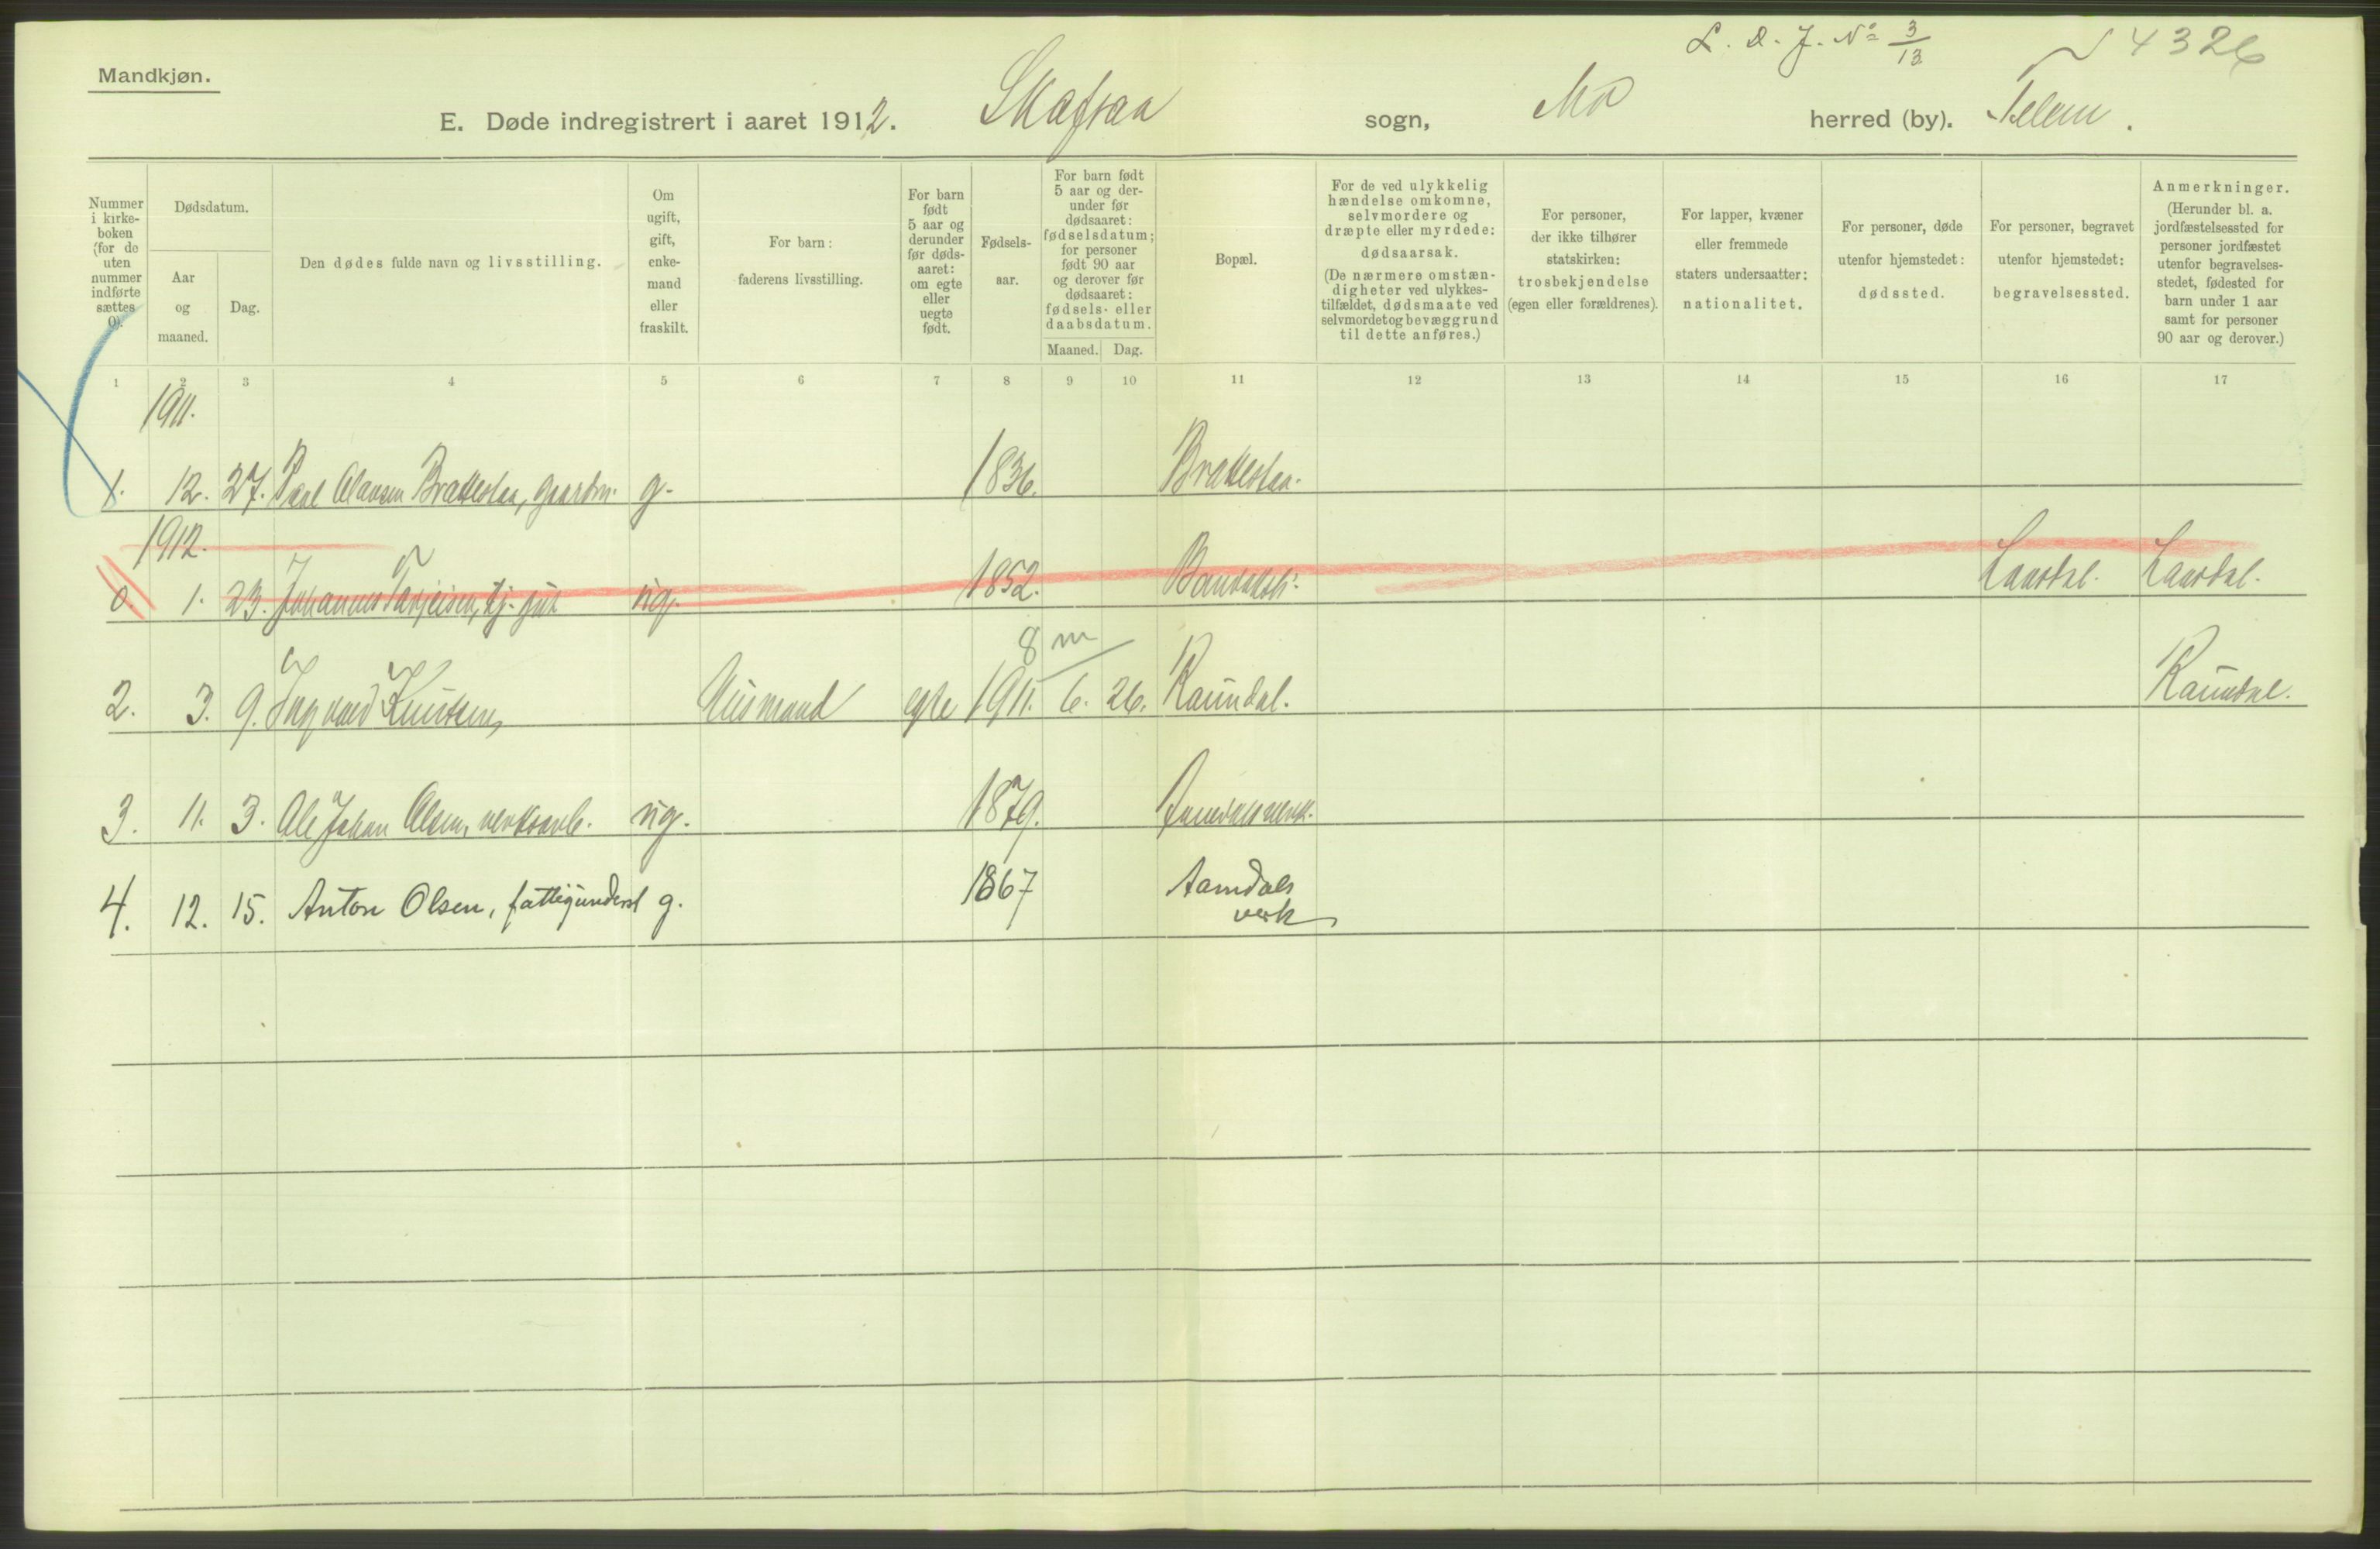 L. D. J. No 3/13
4326
Mandkjøn.
E. Døde indregistrert i aaret 1912. Skafsaa sogn, Mo herred (by). Telem.
Nummer i kirke-boken (for de uten nummer indførte sættes 0).
Dødsdatum.
Aar og maaned.
Dag.
Den dødes fulde navn og livsstilling.
Om ugift, gift, enke-mand eller fraskilt.
For barn: faderens livsstilling.
For barn født 5 aar og derunder før døds-aaret: om egte eller uegte født.
Fødsels-aar.
For barn født 5 aar og der-under før dødsaaret: fødselsdatum; for personer født 90 aar og derover før dødsaaret: fødsels- eller daabsdatum.
Maaned. Dag.
Bopæl.
For de ved ulykkelig hændelse omkomne, selvmordere og dræpte eller myrdede: dødsaarsak. (De nærmere omstæn-digheter ved ulykkes-tilfældet, dødsmaate ved selvmordet og bevæggrund til dette anføres.)
For personer, der ikke tilhører statskirken: trosbekjendelse (egen eller forældrenes).
For lapper, kvæner eller fremmede staters undersaatter: nationalitet.
For personer, døde utenfor hjemstedet: dødssted.
For personer, begravet utenfor hjemstedet: begravelsessted.
Anmerkninger. (Herunder bl. a. jordfæstelsessted for personer jordfæstet utenfor begravelses-stedet, fødested for barn under 1 aar samt for personer 90 aar og derover.)
1 2 3 4 5 6 7 8 9 10 11 12 13 14 15 16 17
1911.
1. 12. 27. Olavsen Brattestaa, gaardm. g. 1836. Brattestaa.
1912.
0. 1. 23. Johannes Tarjeisen, ug. 1852. Laardal. Laardal.
8 m
2. 3. 9. Ingvald Knutsen, Husmand egte 1911. 6. 26. Raundal. Raundal.
3. 11. 3. Ole Johan Olsen, verksarb. ug. 1879. Aamdals verk.
4. 12. 15. Anton Olsen, fattigunderst g. 1867 Aamdals verk